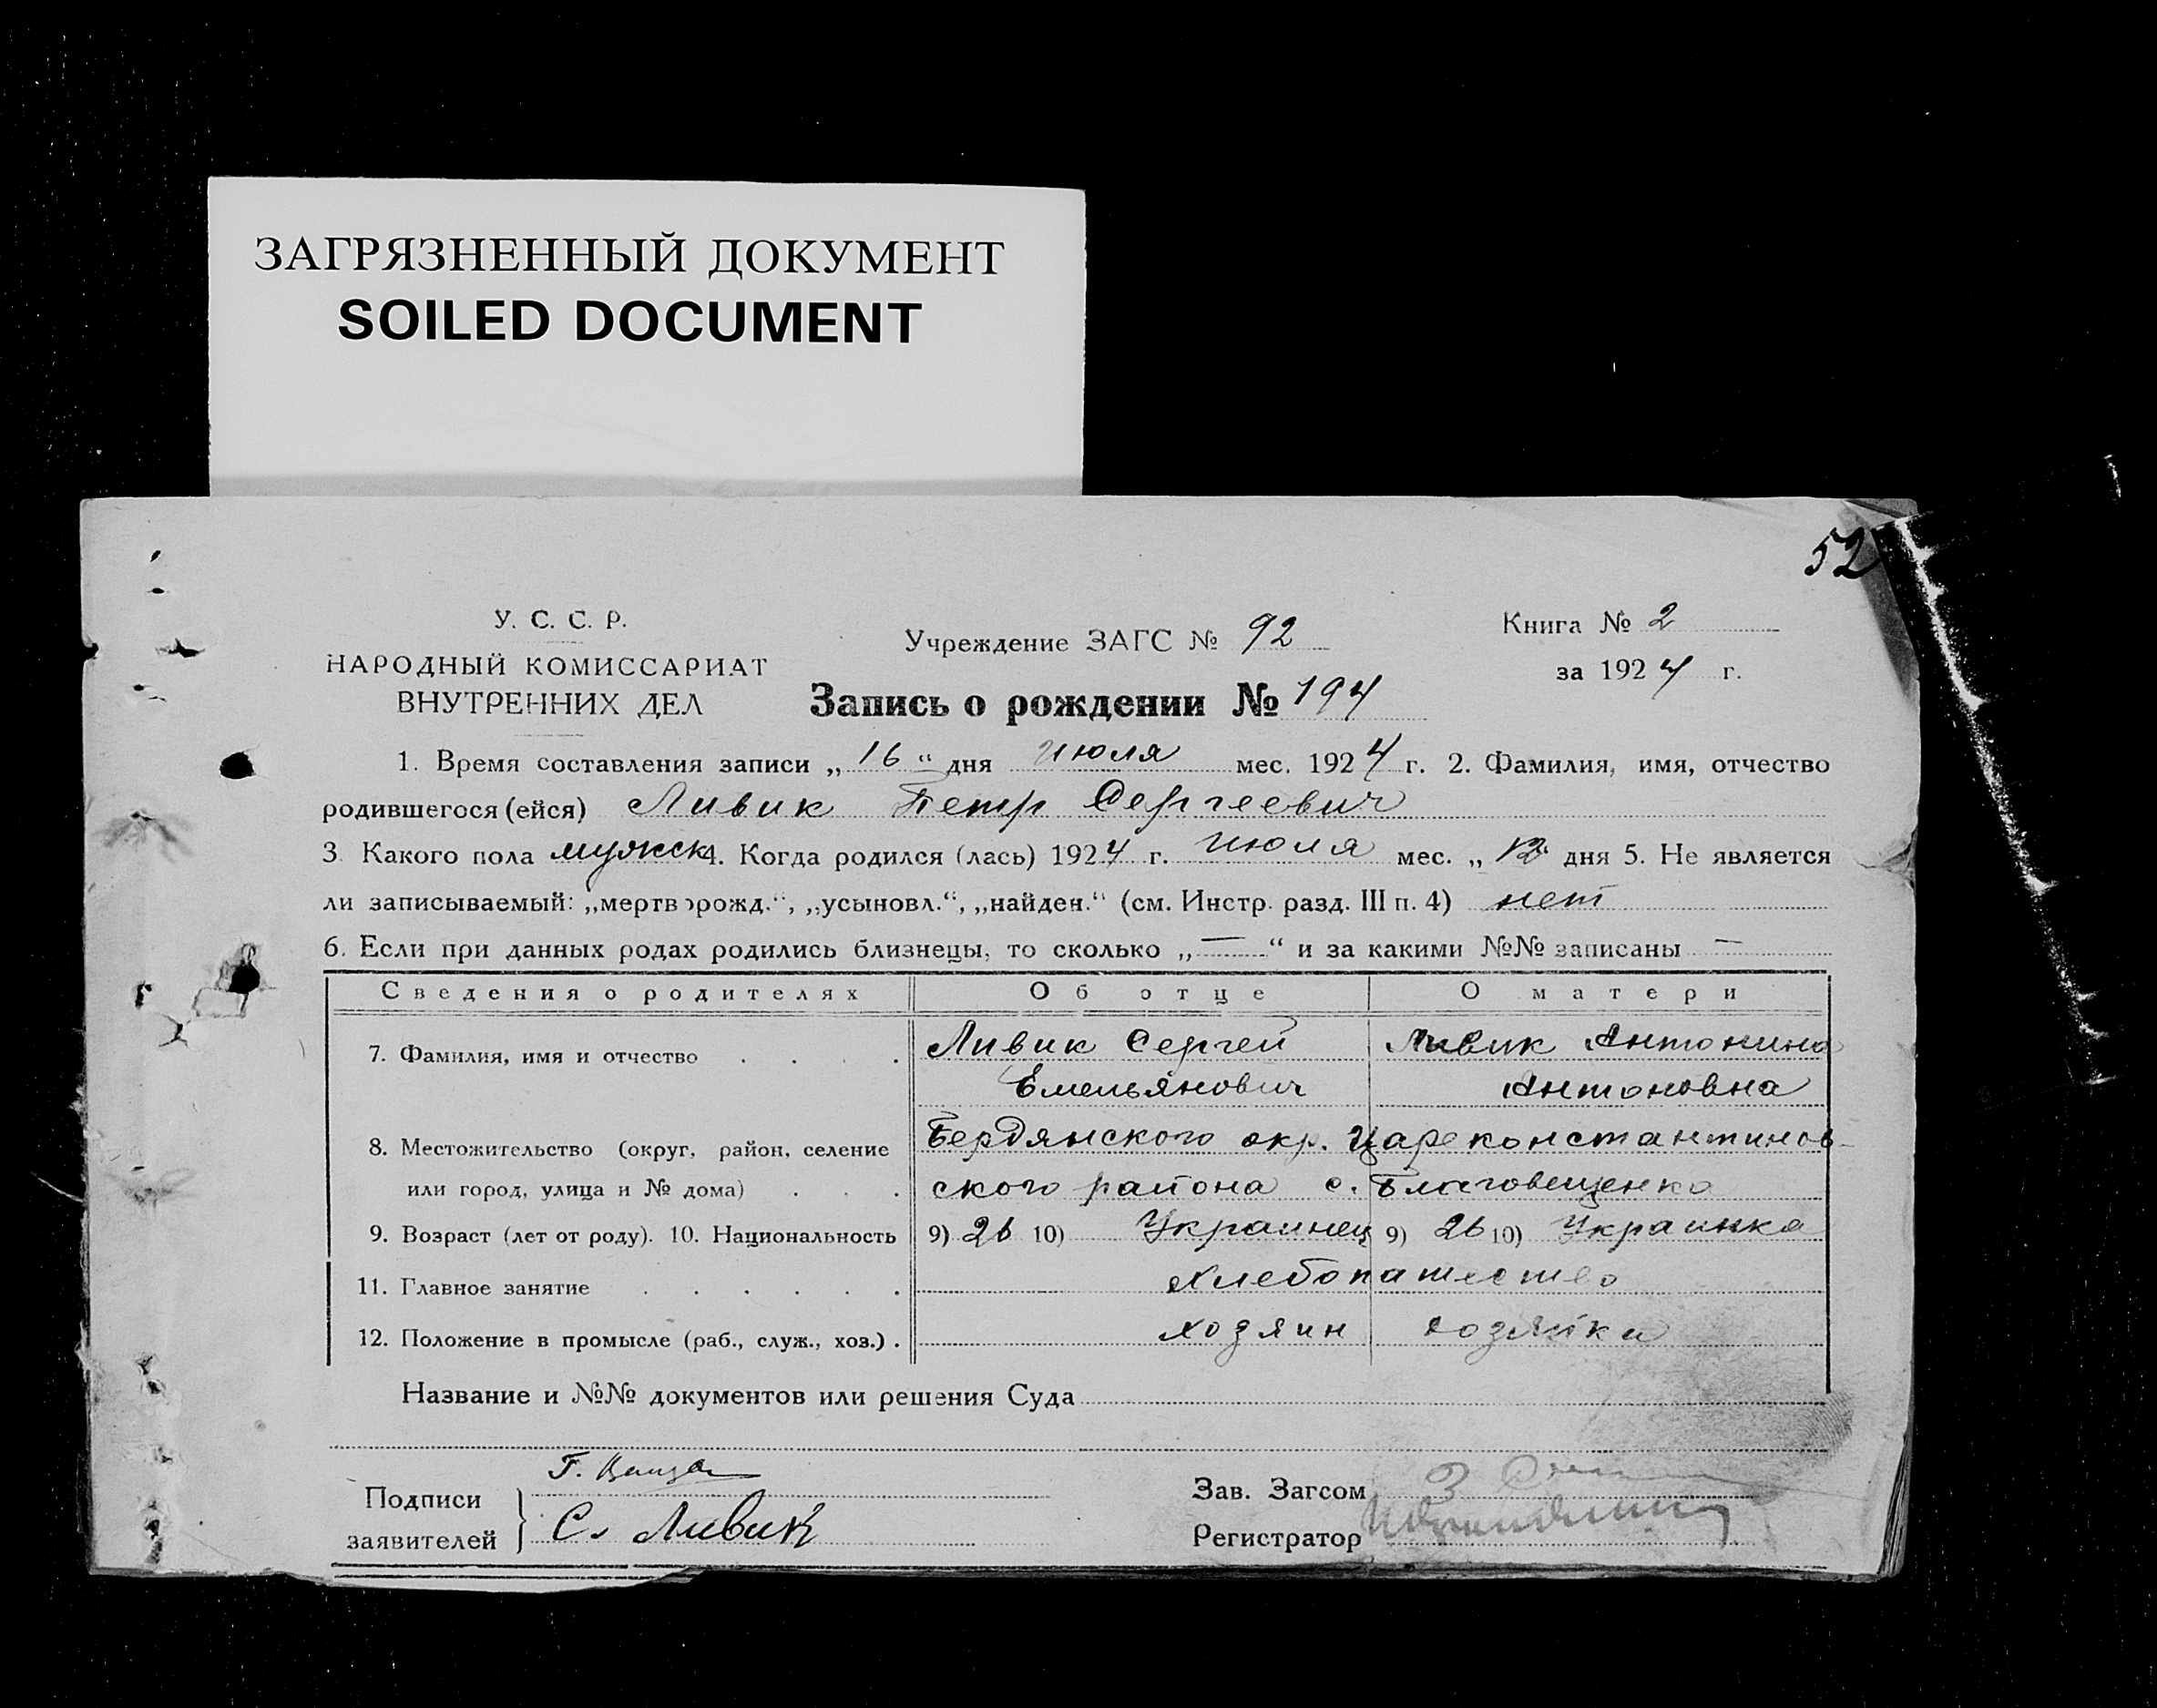 ЗАГРЯЗНЕННЫЙ ДОКУМЕНТ
SOILED DOCUMENT
52
У. С. С. Р.
НАРОДНЫЙ КОМИССАРИАТ
ВНУТРЕННИХ ДЕЛ
Учреждение ЗАГС № 92
Книга № 2
за 1924 г.
Запись о рождении № 194
1. Время составления записи „16“ дня Июля мес. 1924 г. 2. Фамилия, имя, отчество
родившегося (ейся) Ливик Петр Сергеевич
3. Какого пола мужск 4. Когда родился (лась) 1924 г. Июля мес. „ дня 5. Не является
ли записываемый: „мертворожд.“, „усыновл.“, „найден.“ (см. Инстр. разд. III п. 4) нет
6. Если при данных родах родились близнецы, то сколько „—“ и за какими №№ записаны —
Сведения о родителях Об отце О матери
7. Фамилия, имя и отчество . . . . Ливик Сергей Ливик Антонина
Емельянович Антоновна
8. Местожительство (округ, район, селение Бердянского окр. Цареконстантинов-
или город, улица и № дома) . . . ского района с. Благовещенка
9. Возраст (лет от роду). 10. Национальность 9) 26 10) Украинец 9) 26 10) Украинка
11. Главное занятие . . . . . . Хлебопашество
12. Положение в промысле (раб., служ., хоз.) . хозяин хозяйка
Название и №№ документов или решения Суда
Подписи
заявителей
Г.
С. Ливик
Зав. Загсом
Регистратор